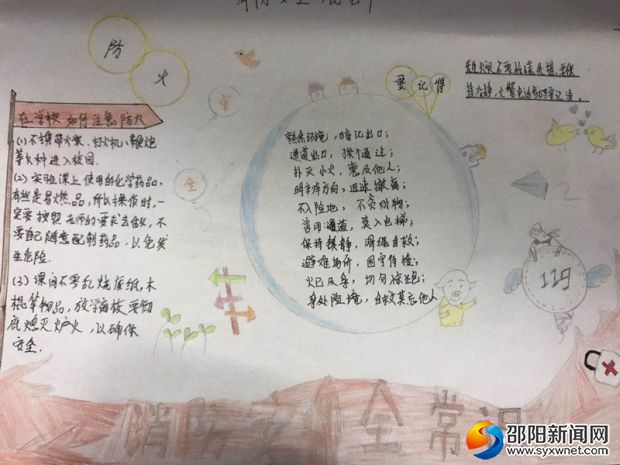 防火
安全
要记得
在学校如何注意防火
(1)不携带火柴、打火机、鞭炮
等火种进入校园.
(2)实验课上使用的化学药品,
有些是易燃品,所以操作时,一
定要按照老师的要求去做,不
要自己随意配制药品,以免发
生危险.
(3)课间不要乱烧废纸,木
棍等物品,放学离校要彻
底熄灭炉火,以确保
安全.
熟悉环境,暗记出口;
通道出口,
扑灭小火,惠及他人;
明辨方向,迅速撤离;
不入险地,不贪财物;
善用通道,莫入电梯;
保持镇静,
避难场所,固守待援;
火已及身,切勿惊跑;
身处险境,自救莫忘他人
119
消防安全常识
邵阳新闻网
www.syxwnet.com